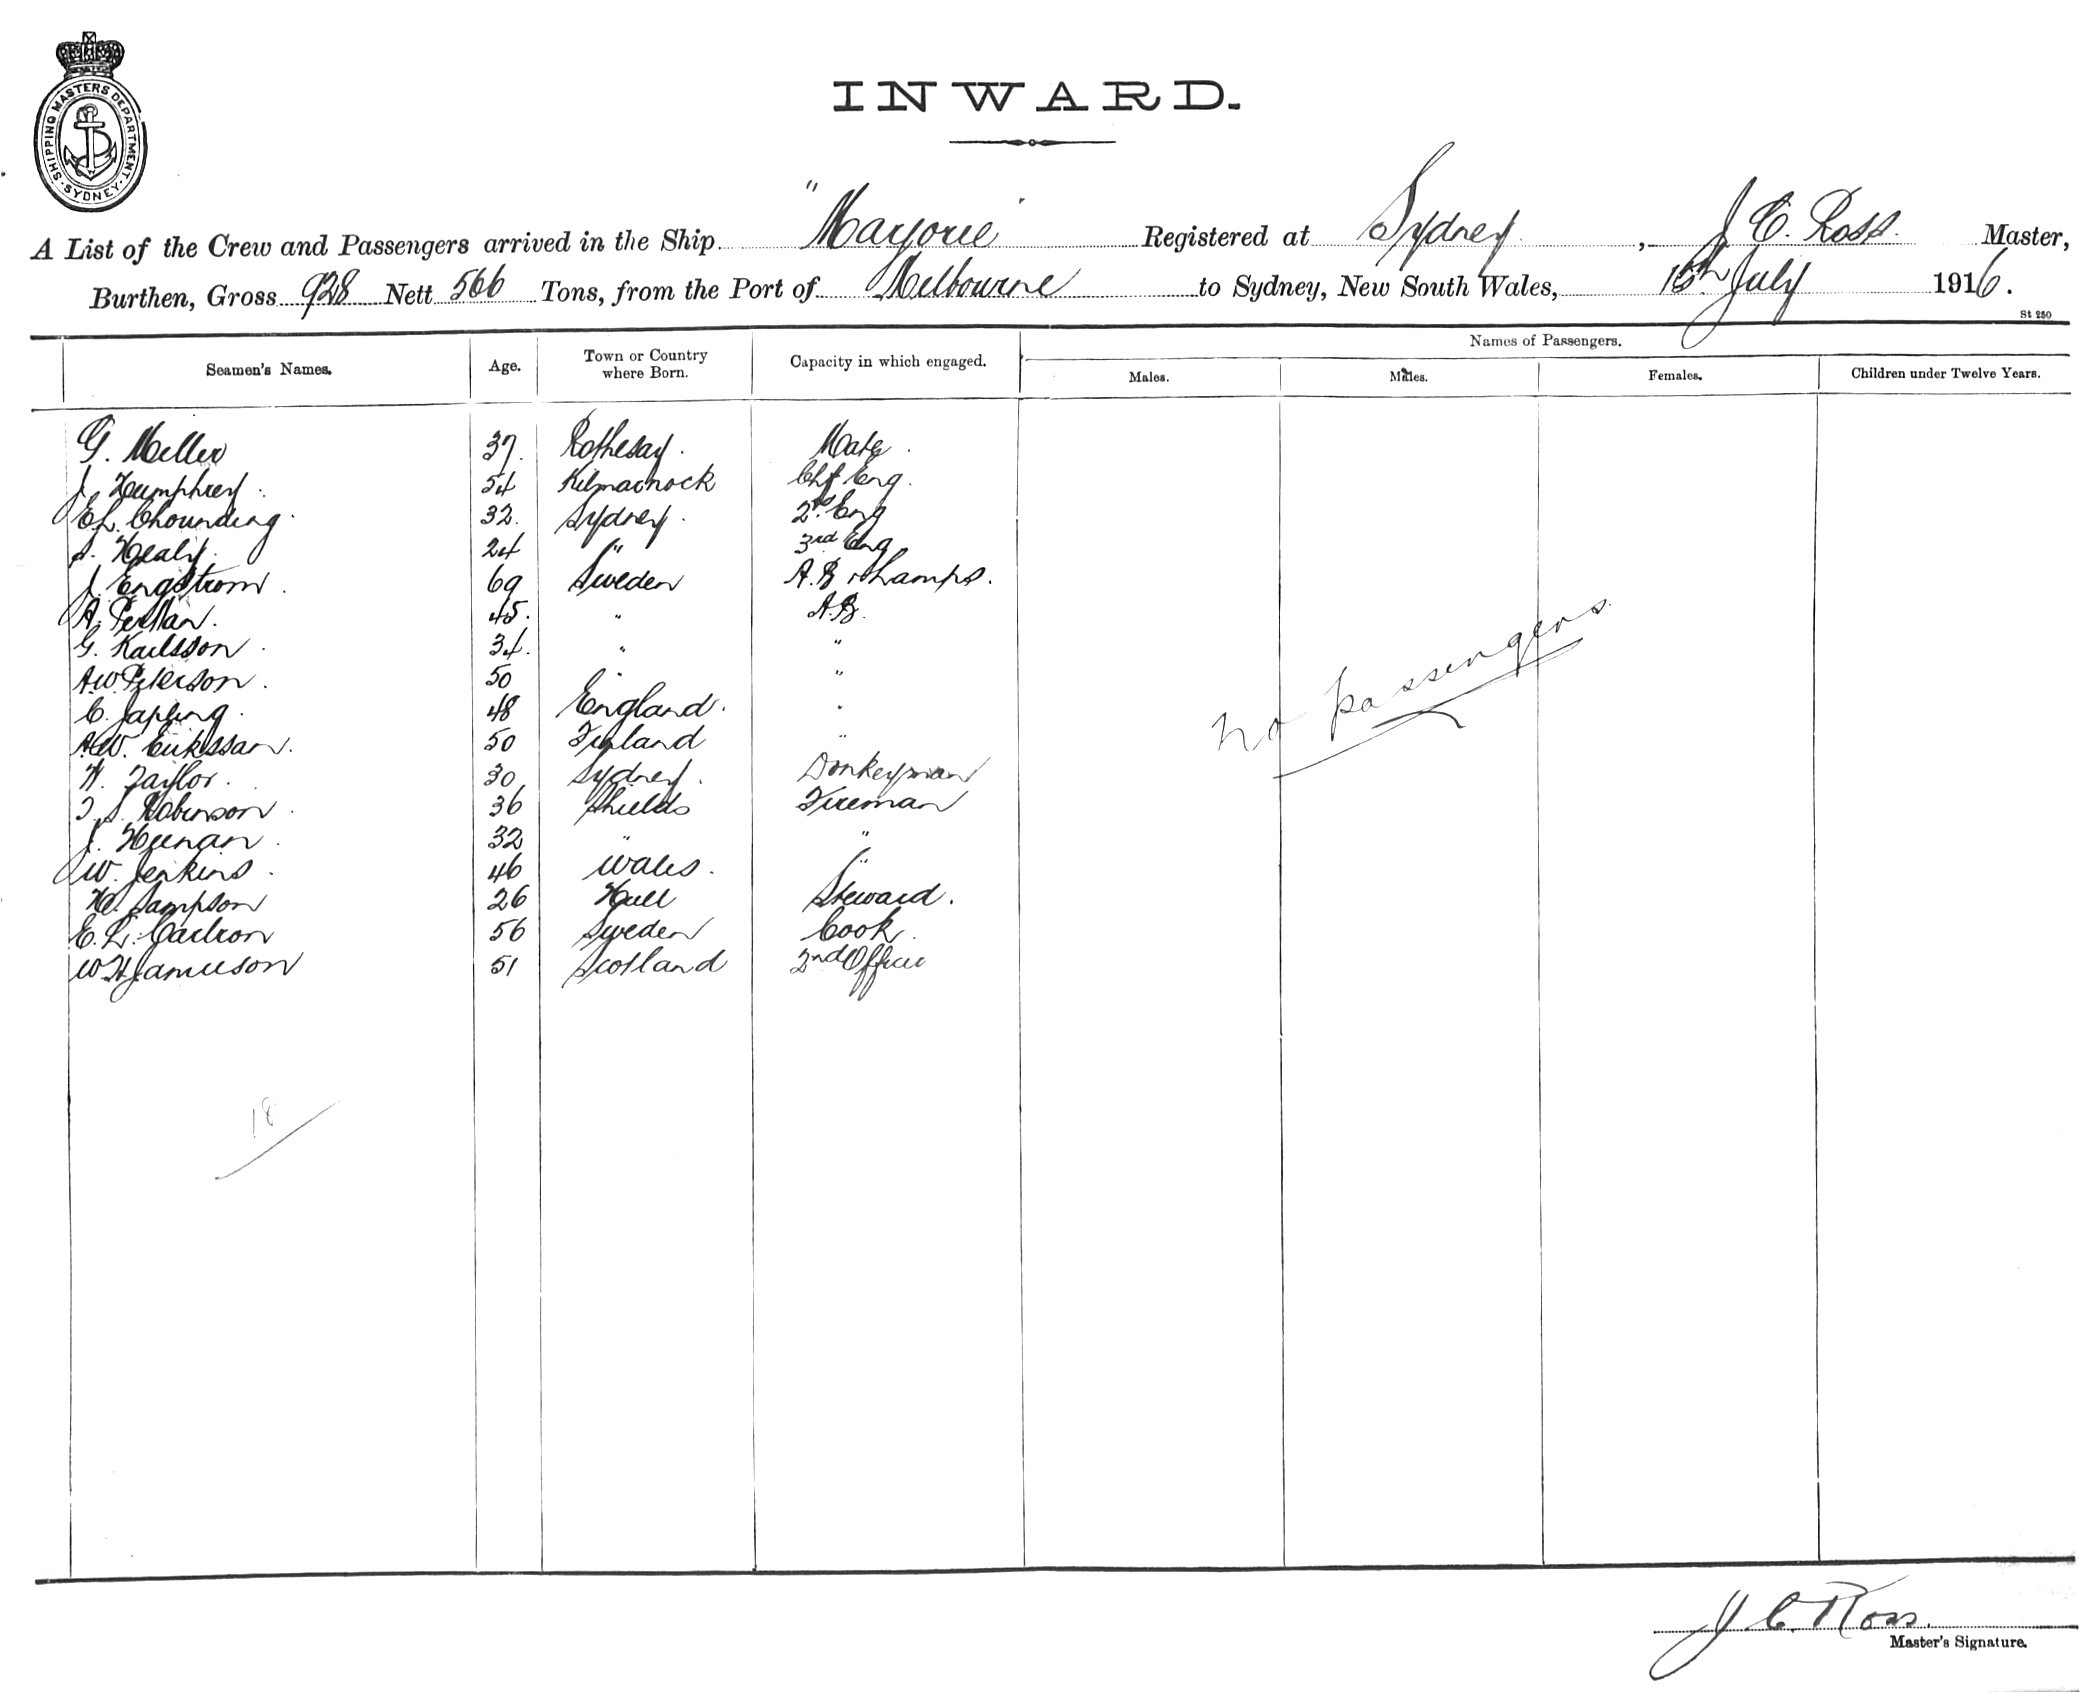 SHIPPING MASTERS DEPARTMENT · SYDNEY ·
INWARD.
A List of the Crew and Passengers arrived in the Ship "Marjorie" Registered at Sydney, J C. Ross. Master,
Burthen, Gross 928 Nett 566 Tons, from the Port of Melbourne to Sydney, New South Wales, 15th July 1916.
St 250
Seamen's Names. Age. Town or Country where Born. Capacity in which engaged. Names of Passengers.
Males. Males. Females. Children under Twelve Years.
G. Miller 37. Rothesay. Mate.
J. Humphrey. 54 Kilmarnock Chf Eng.
E.L. Chounding. 32. Sydney. 2nd Eng
S. Healy. 24 " 3rd Eng
J. Engstrom. 69 Sweden A.B & Lamps.
A. Perllan. 45. " A.B.
G. Karlsson. 34. " "
A.W. Peterson. 50 " "
C. Japling. 48 England. "
A.W. Erikssan. 50 Finland "
W. Taylor. 30 Sydney. Donkeyman
T. S. Robinson. 36 Shields Fireman
J. Heenan. 32 " "
W. Jenkins. 46 Wales. "
H. Sampson 26 Hull Steward.
E. L. Carlson 56 Sweden Cook.
W. H Jamieson 51 Scotland 2nd Officer
No passengers
18
J C. Ross.
Master's Signature.